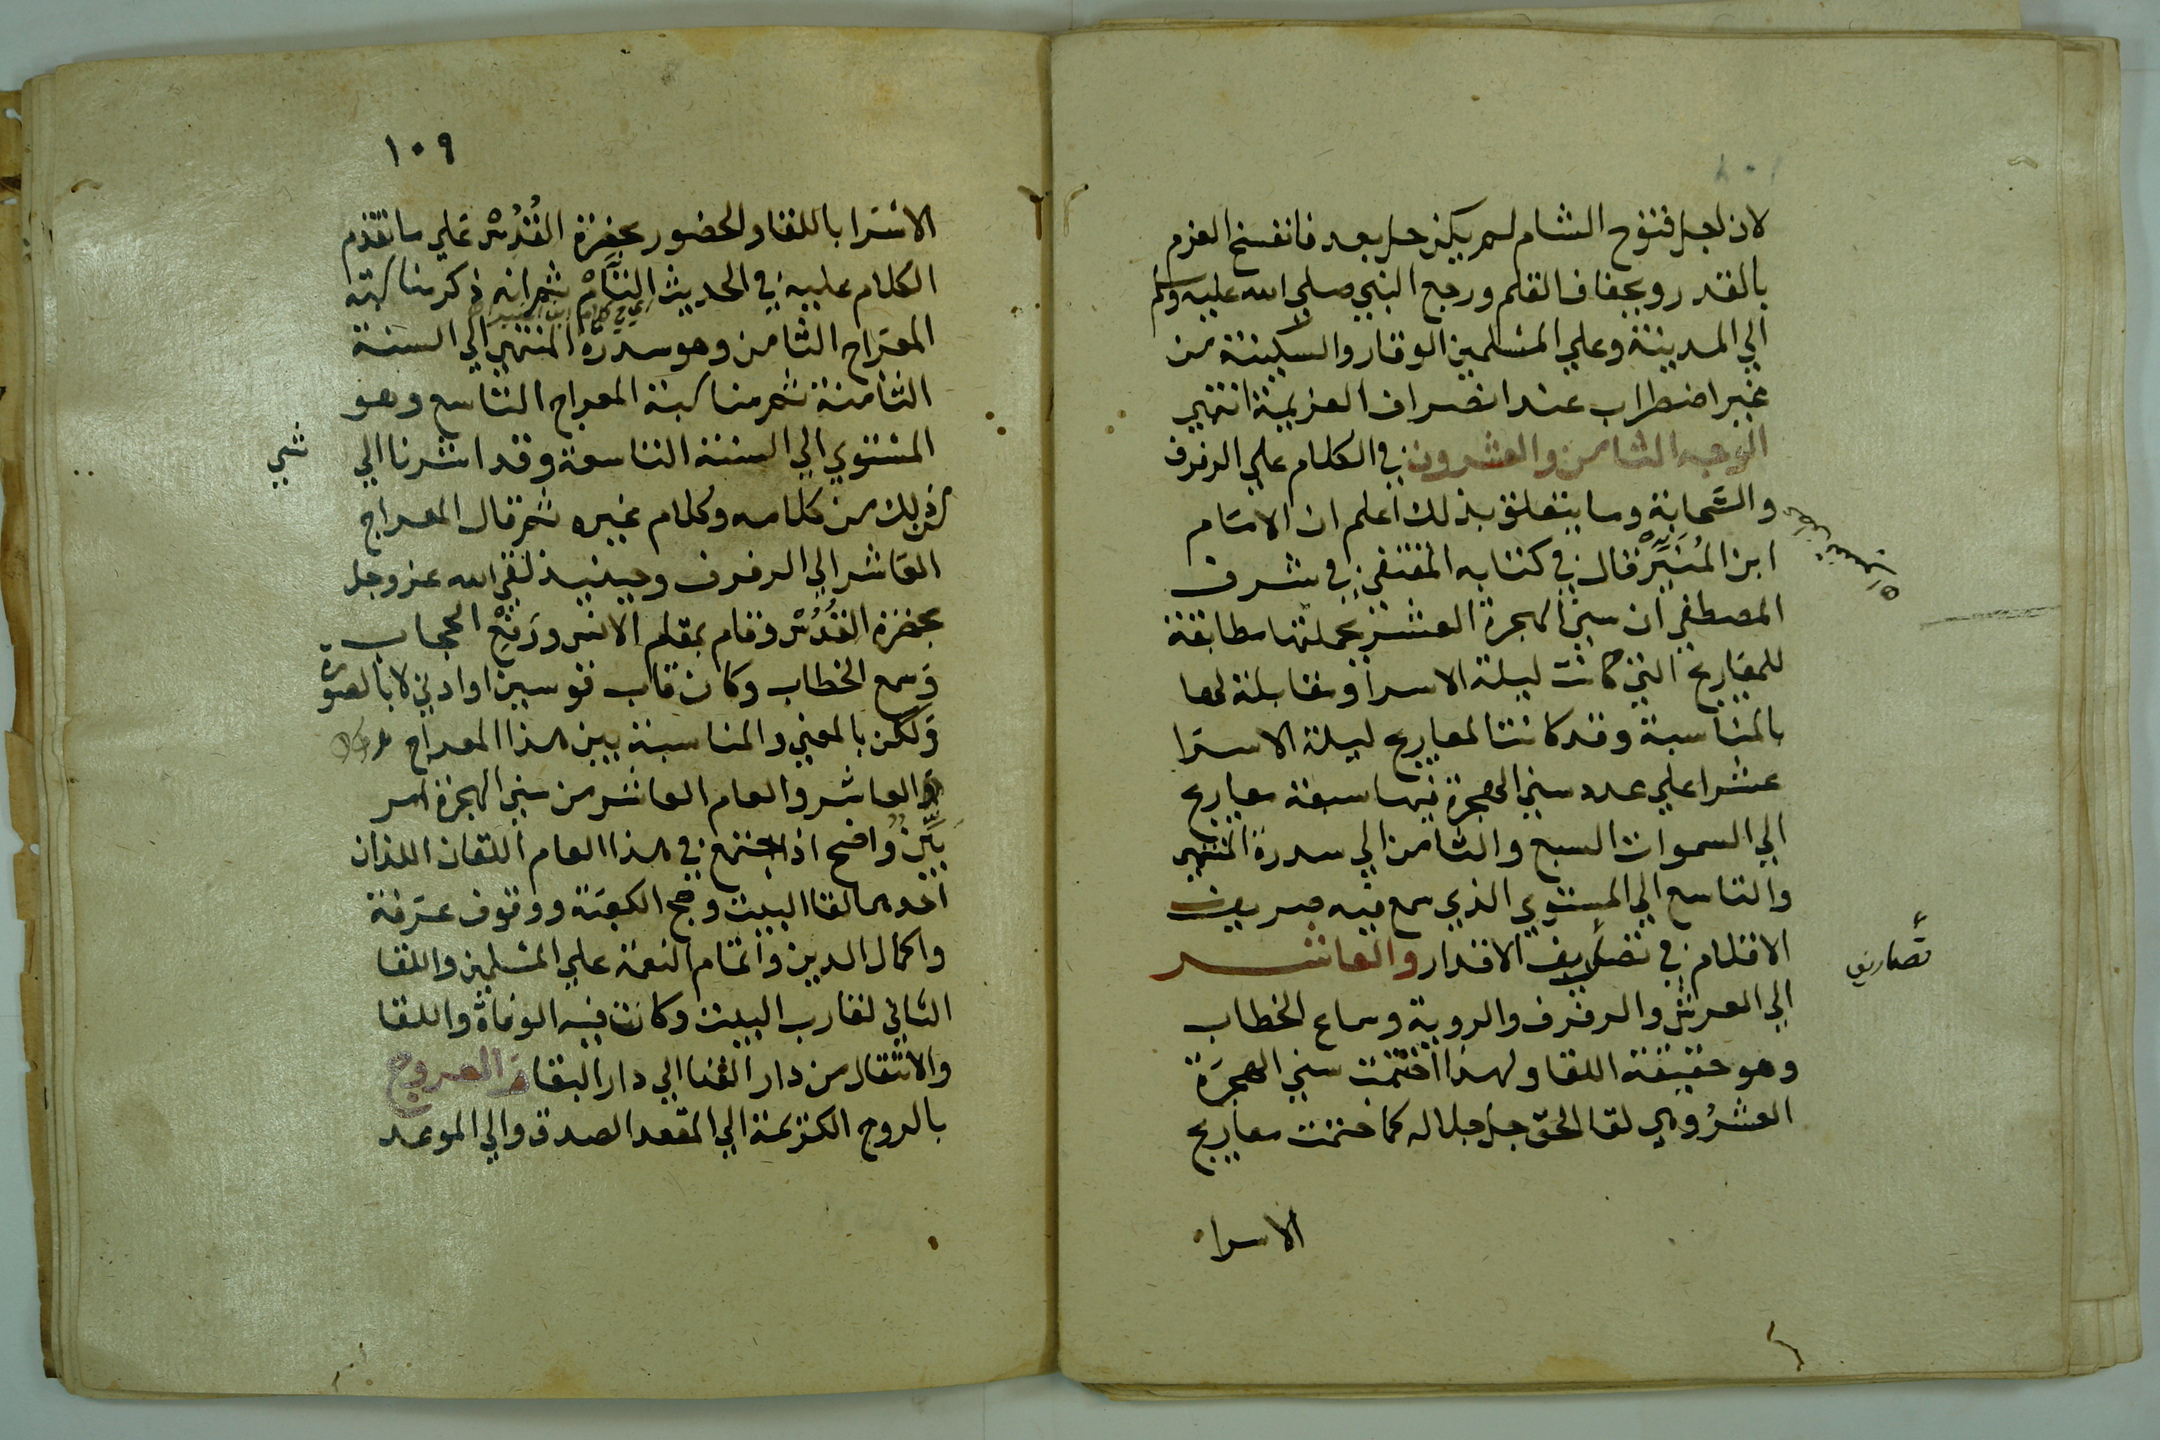 لان لجل فتوح الشام لم يكن حل بعد فانفسخ العزم
بالقدر وبجفاف القلم ورجع النبي صلي الله عليه وسلم
الي المدينة وعلي المسلمين الوقار والسكينة من
غير اضطراب عند انصراف العزيمة انتهي
الوجه الثامن والعشرون في الكلام علي الرفرف
والسحابة وما يتعلق بذلك اعلم ان الامام
ابن المُنَيِّر قال في كتابه المقتفي في شرف
المصطفي ان سني الهجرة العشر بجملتها مطابقة
للمعاريج التي كانت ليلة الاسرا ومقابلة لها
بالمناسبة وقد كانت المعاريج ليلة الاسرا
عشرا علي عدد سني الهجرة فيها سبعة معاريج
الي السموات السبع والثامن الي سدرة المنتهي
والتاسع الي المستوي الذي سمع فيه صريف
الاقلام في تصاريف الاقدار والعاشر
تصاريف
الي العرش والرفرف والروية وسماع الخطاب
وهو حقيقة اللقا ولهذا اختتمت سني الهجرة
العشرُ وهي لقا الحق جل جلاله كما ختمت معاريج
الاسرا
١٠٩
الاسرا باللقا والحضور بحضرة القُدُسْ علي ما تقدم
الكلام عليه في الحديث التَّامْ ثم انه ذكر مناسبة
المعراج الثامن وهو سدرة المنتهي الي السنة
الثامنة ثم مناسبة المعراج التاسع وهو
المستوي الي السنة التاسعة وقد اشرنا الي
شي
ذلك من كلامه وكلام غيره ثم قال المعراج
العاشر الي الرفرف وحينيذ لقي الله عز وجل
بحضرة القُدُسْ وقام بمقام الانس ورَفْعِ الحجاب
وَسمع الخطاب وكان قاب قوسين او ادني لا بالصورة
وَلكن بالمعني والمناسبة بين هذا المعراج
العاشر والعام العاشر من سني الهجرة امر
بَيِّنٌ واضح اذا اجتمع في هذا العام اللقان اللذان
احدهما لقا البيت وحج الكعبة ووقوف عرفة
واكمال الدين واتمام النعمة علي المسلمين واللقا
الثاني لقا رب البيت وكانت فيه الوفاة واللقا
والانتقال من دار الفنا الي دار البقا والعروج
بالروح الكريمة الي المقعد الصدق والي الموعد